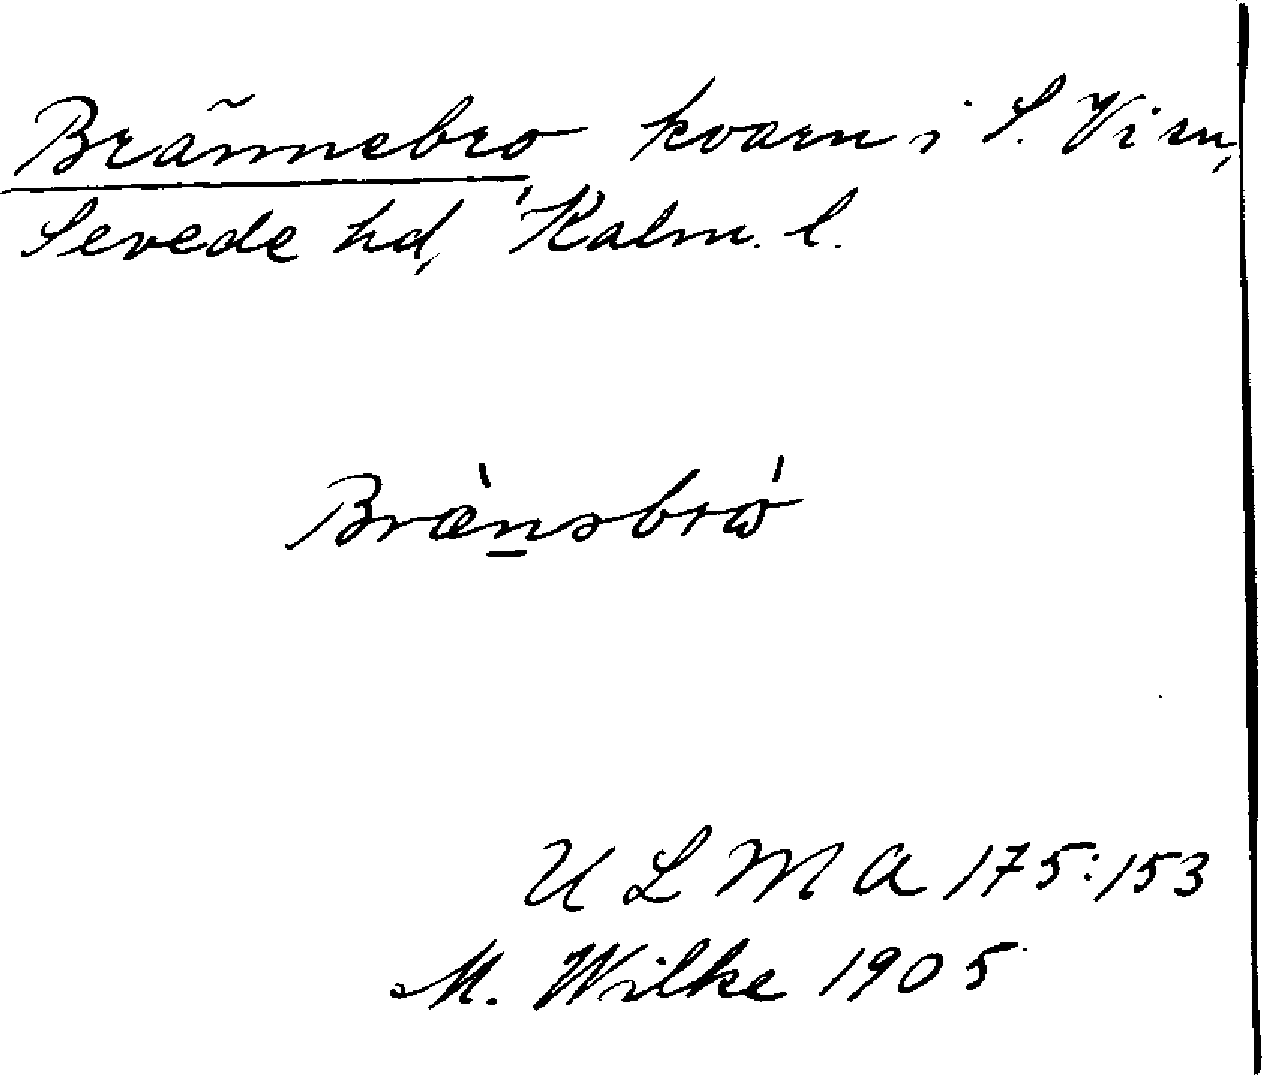 Brännebro kvarn i S. Vi sn,
Sevede hd, Kalm. l.
Bræ̀n̲sbrώ
U L M A 175:153
M. Wilke 1905